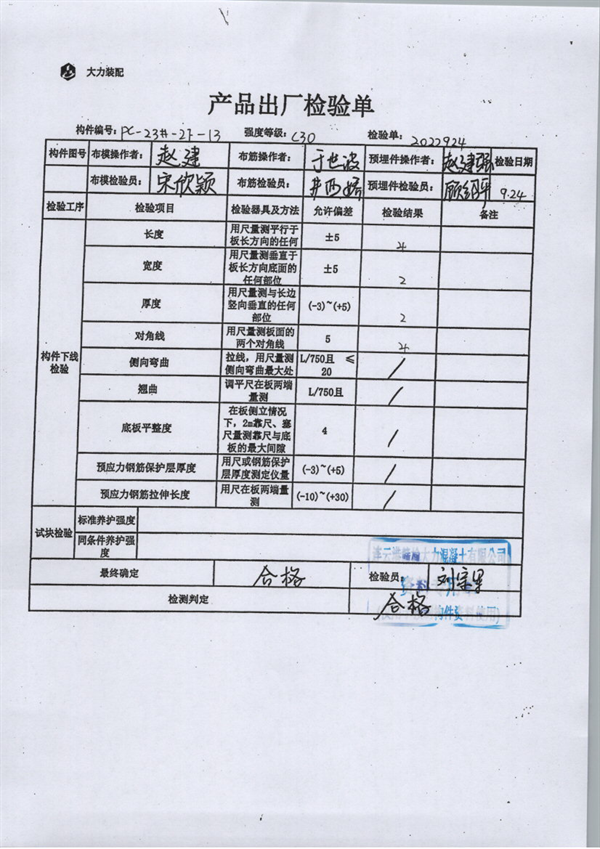 大力装配
产品出厂检验单
构件编号: PC-23#-2F-13 强度等级: C30 检验单: 2022924
构件图号 布模操作者: 赵建 布筋操作者: 于世波 预埋件操作者: 赵建强 检验日期
布模检验员: 宋欣颖 布筋检验员: 预埋件检验员: 9.24
检验工序 检验项目 检验器具及方法 允许偏差 检验结果 备注
构件下线检验
长度 用尺量测平行于板长方向的任何 ±5 4
宽度 用尺量测垂直于板长方向底面的任何部位 ±5 2
厚度 用尺量测与长边竖向垂直的任何部位 (-3)~(+5) 2
对角线 用尺量测板面的两个对角线 5 4
侧向弯曲 拉线，用尺量测侧向弯曲最大处 L/750且 ≤20 /
翘曲 调平尺在板两端量测 L/750且 /
底板平整度 在板侧立情况下，2m靠尺、塞尺量测靠尺与底板的最大间隙 4 /
预应力钢筋保护层厚度 用尺或钢筋保护层厚度测定仪量 (-3)~(+5) /
预应力钢筋拉伸长度 用尺在板两端量测 (-10)~(+30) /
试块检验 标准养护强度
同条件养护强度
最终确定 合格 检验员:
检测判定 合格